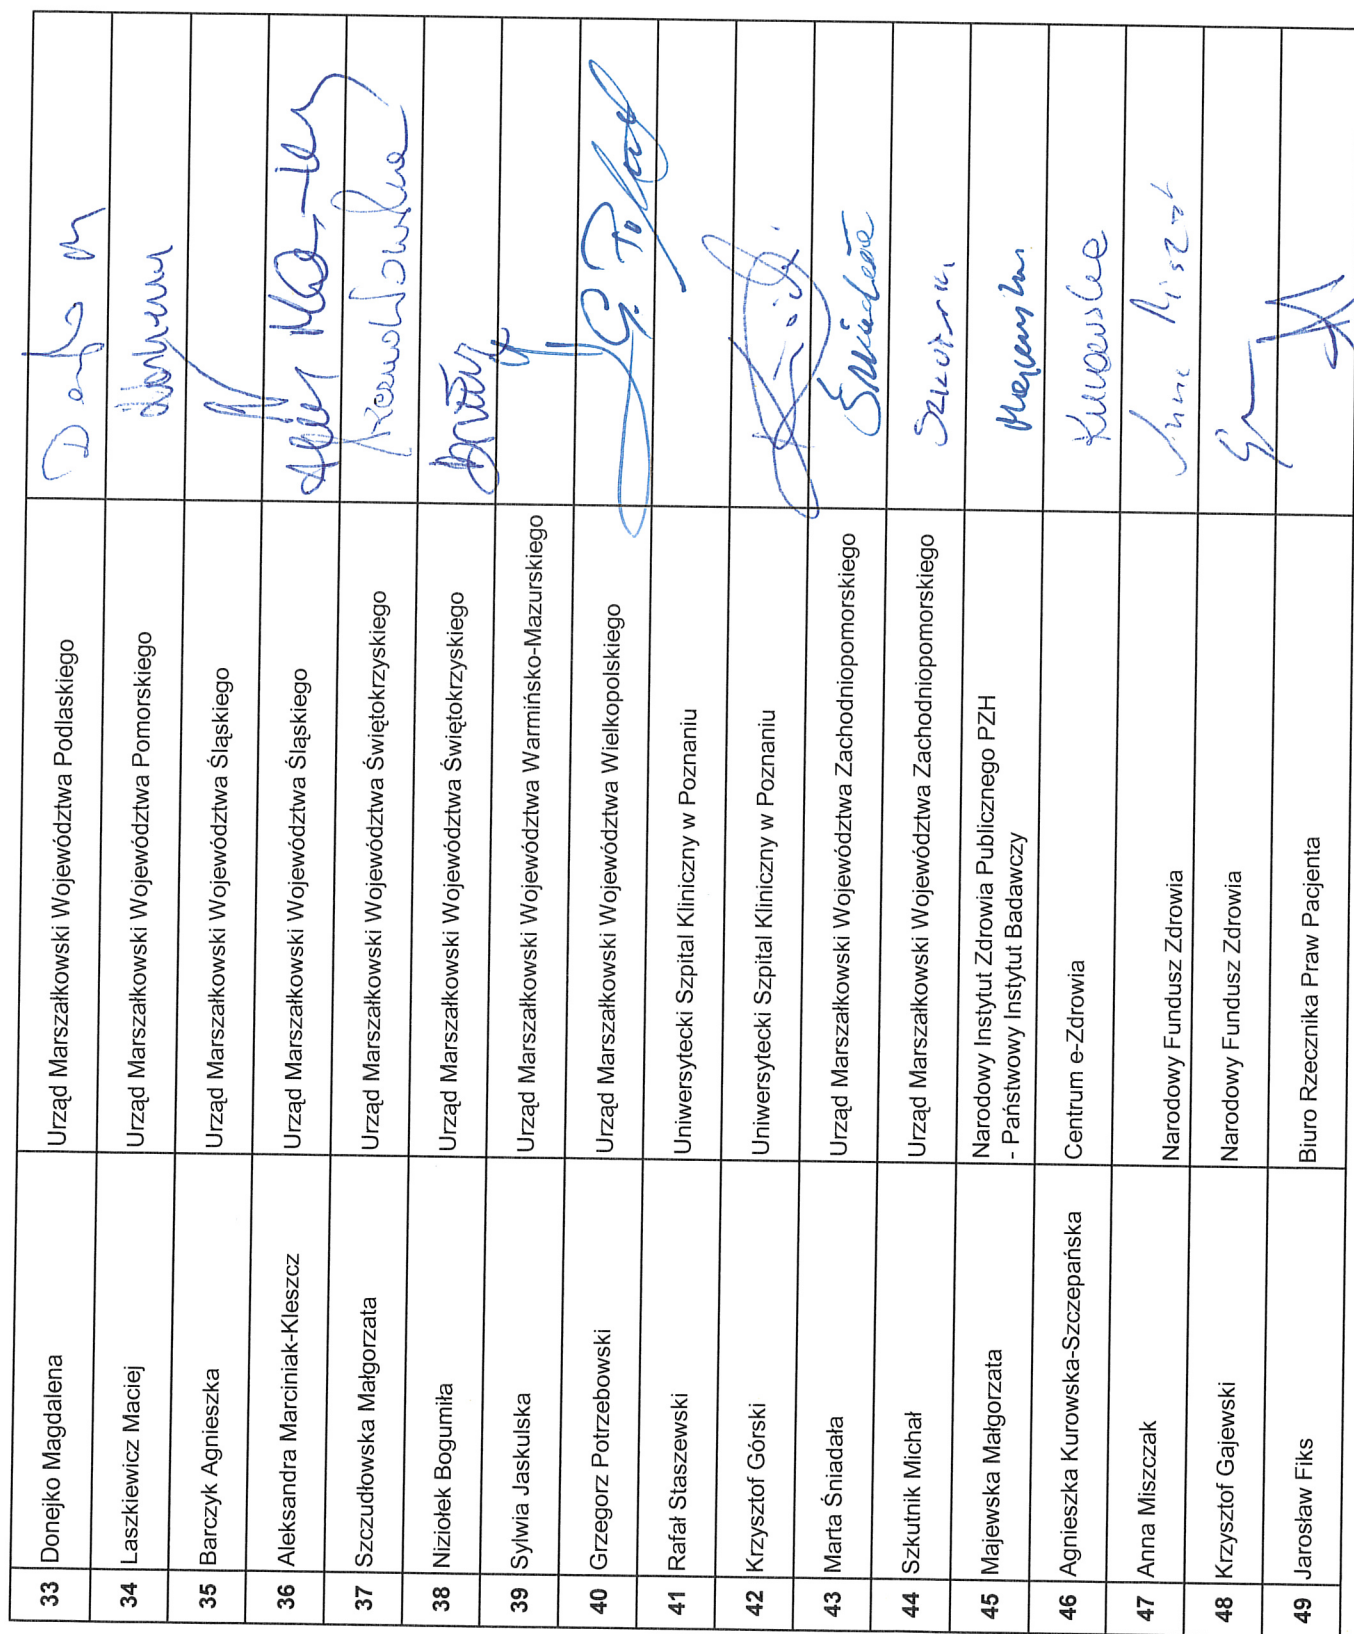 33 Donejko Magdalena Urząd Marszałkowski Województwa Podlaskiego
34 Laszkiewicz Maciej Urząd Marszałkowski Województwa Pomorskiego
35 Barczyk Agnieszka Urząd Marszałkowski Województwa Śląskiego
36 Aleksandra Marciniak-Kleszcz Urząd Marszałkowski Województwa Śląskiego
37 Szczudłowska Małgorzata Urząd Marszałkowski Województwa Świętokrzyskiego
38 Niziołek Bogumiła Urząd Marszałkowski Województwa Świętokrzyskiego
39 Sylwia Jaskulska Urząd Marszałkowski Województwa Warmińsko-Mazurskiego
40 Grzegorz Potrzebowski Urząd Marszałkowski Województwa Wielkopolskiego
41 Rafał Staszewski Uniwersytecki Szpital Kliniczny w Poznaniu
42 Krzysztof Górski Uniwersytecki Szpital Kliniczny w Poznaniu
43 Marta Śniadała Urząd Marszałkowski Województwa Zachodniopomorskiego
44 Szkutnik Michał Urząd Marszałkowski Województwa Zachodniopomorskiego
45 Majewska Małgorzata Narodowy Instytut Zdrowia Publicznego PZH
- Państwowy Instytut Badawczy
46 Agnieszka Kurowska-Szczepańska Centrum e-Zdrowia
47 Anna Miszczak Narodowy Fundusz Zdrowia
48 Krzysztof Gajewski Narodowy Fundusz Zdrowia
49 Jarosław Fiks Biuro Rzecznika Praw Pacjenta